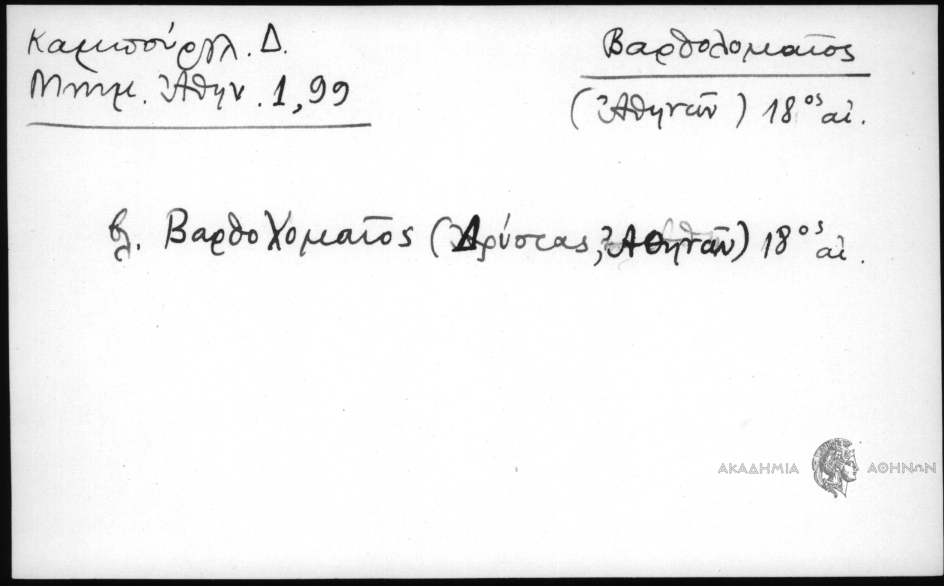 Καμπούρογλ. Δ.
Μνημ. Ἀθην. 1,99
Βαρθολομαῖος
(Ἀθηνῶν) 18ος αἰ.
βλ. Βαρθολομαῖος (Δρύστας, Ἀθηνῶν) 18ος αἰ.
ΑΚΑΔΗΜΙΑ ΑΘΗΝΩΝ